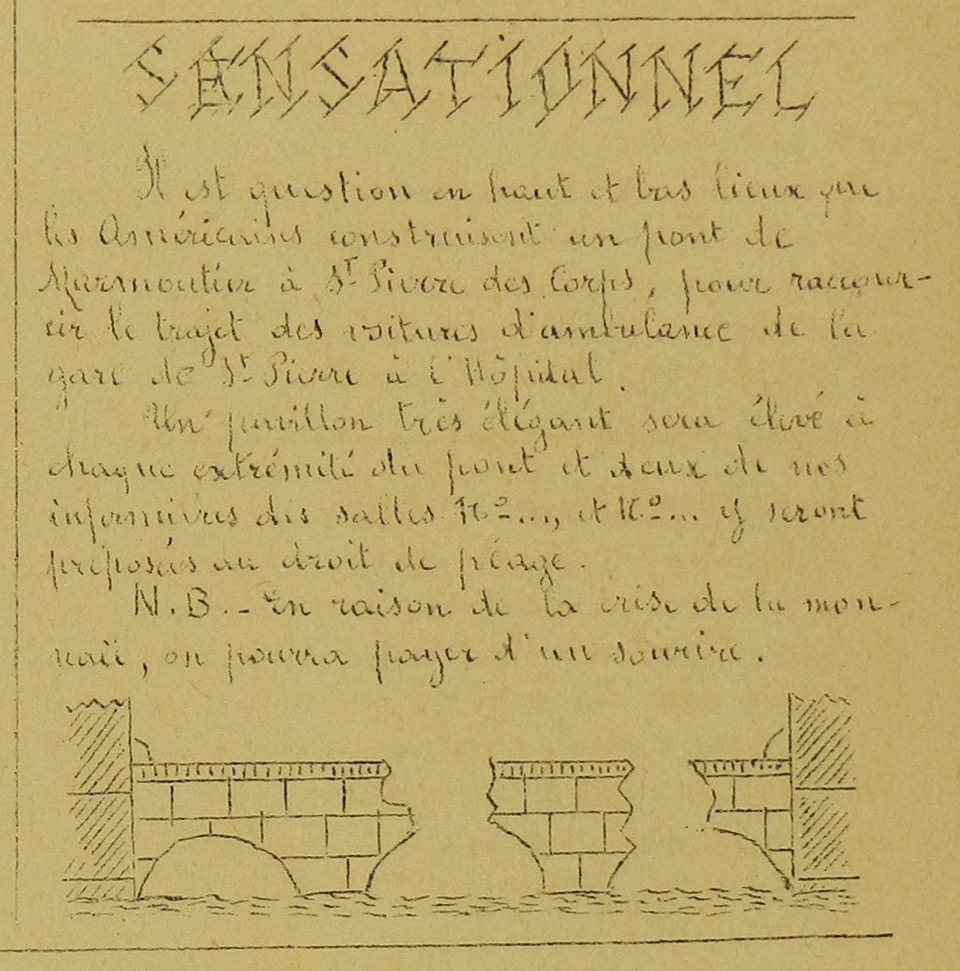 SENSATIONNEL
Il est question en haut et bas lieux que
les Américains construisent un pont de
Marmoutier à St Pierre des Corps, pour raccour-
cir le trajet des voitures d'ambulance de la
gare de St Pierre à l'Hôpital.
Un pavillon très élégant sera élevé à
chaque extrémité du pont et deux de nos
infirmières des salles No..., et No... y seront
préposées au droit de péage.
N.B. - En raison de la crise de la mon-
naie, on pourra payer d'un sourire.